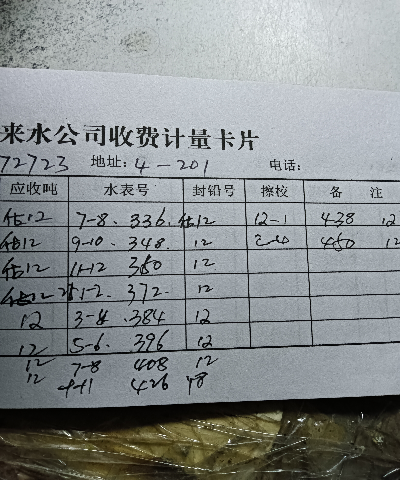 来水公司收费计量卡片
72723 地址:4-201 电话:
应收吨 水表号 封铅号 擦校 备 注
估12 7-8. 336. 估12 12-1 438 12
估12 9-10. 348. 12 450 12
估12 11-12 360 12
1-2. 372. 12
12 3-4 .384 12
12 5-6. 396 12
12 7-8 408 12
12 426 18